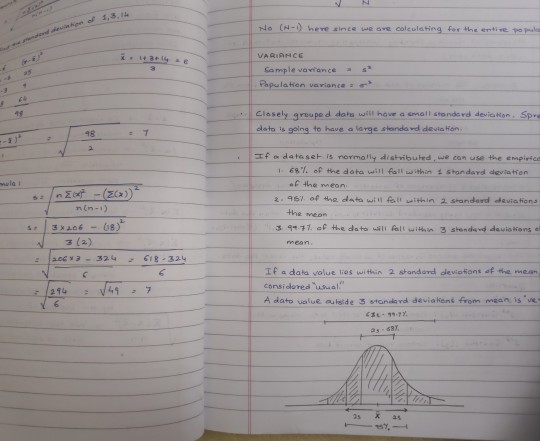 standard deviation of 1,3,14
x̄ = 1+3+14 / 3 = 6
(x-6)²
25
9
64
98
= √ 98 / 2 = 7
s = √ n Σ(x)² - (Σ(x))² / n(n-1)
s = √ 3×206 - (18)² / 3(2)
= √ 206×3 - 324 / 6 = 618-324 / 6
= √ 294 / 6 = √49 = 7
N
No (N-1) here since we are calculating for the entire
VARIANCE
Sample variance = s²
Population variance = σ²
Closely grouped data will have a small standard deviation.
data is going to have a large standard deviation.
If a dataset is normally distributed, we can use the
1. 68% of the data will fall within 1 standard deviation
of the mean.
2. 95% of the data will fall within 2 standard deviations
the mean
3. 99.7% of the data will fall within 3 standard deviations
mean.
If a data value lies within 2 standard deviations of the mean,
considered "usual."
A data value outside 3 standard deviations from mean is
99.7%
68%
2s x̄ 2s
95%